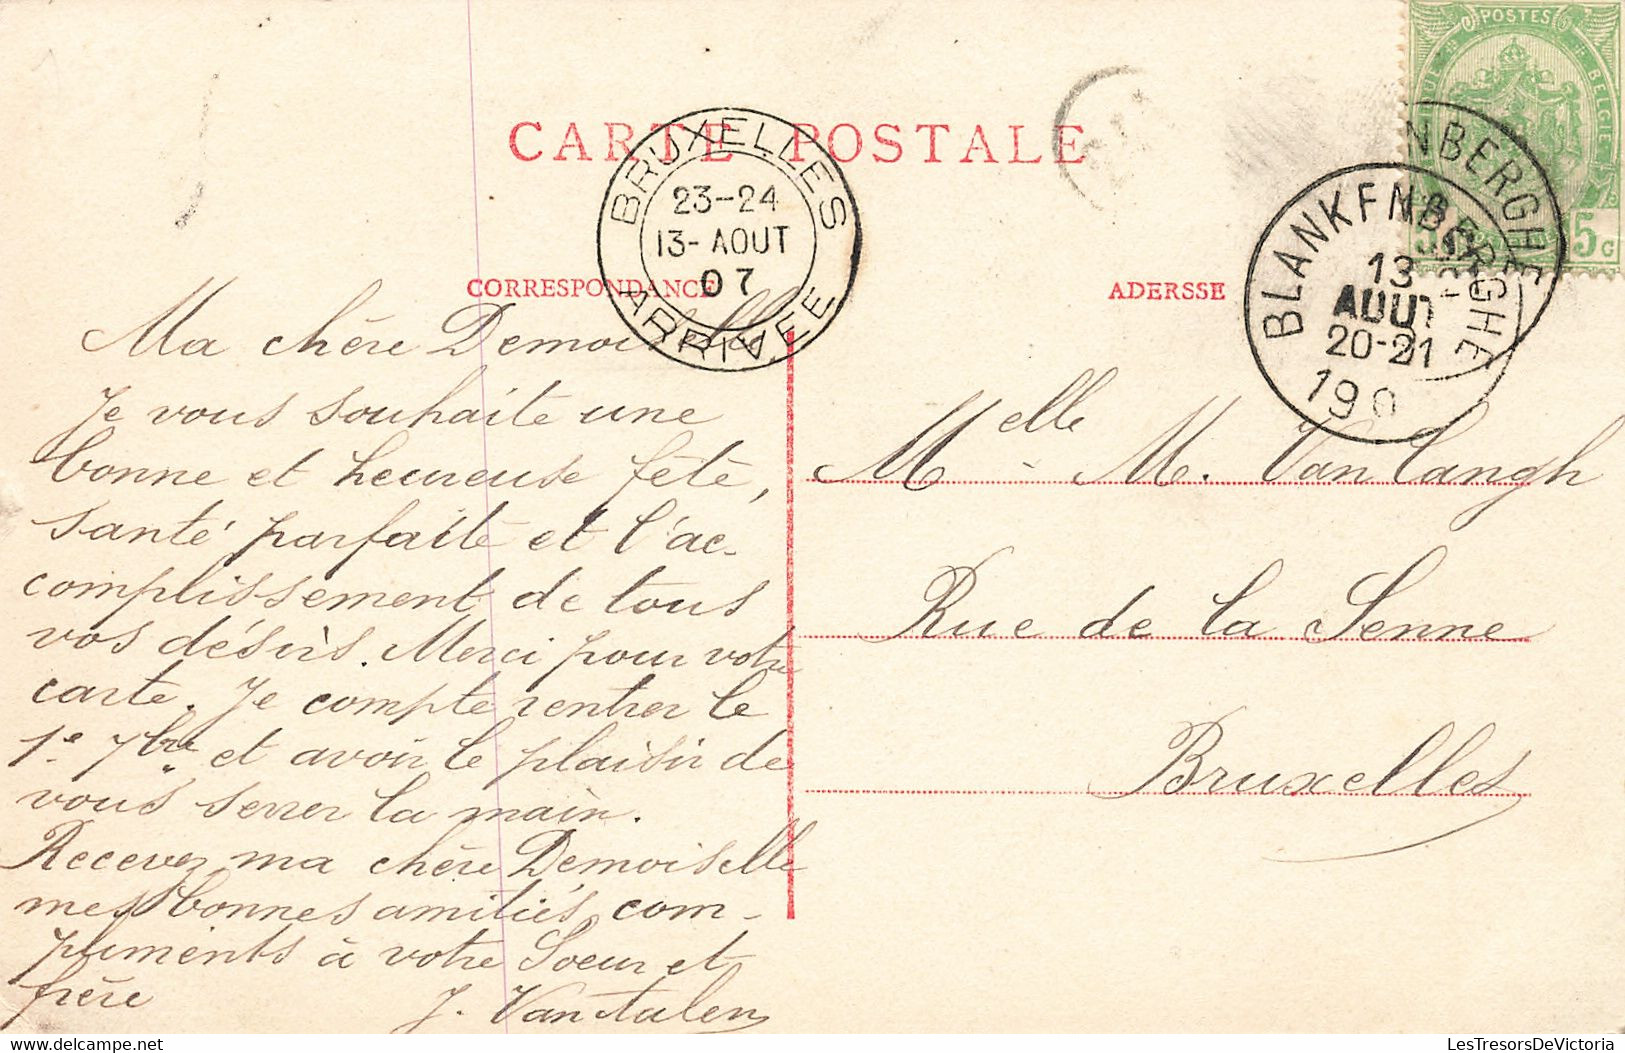 CARTE POSTALE
BRUXELLES
23-24
13-AOUT
07
ARRIVEE
POSTES
BELGIE
5 5c
BLANKENBERGHE
13
AOUT
20-21
190
NBERGHE
CORRESPONDANCE
ADERSSE
Ma chère Demoiselle
Je vous souhaite une
bonne et heureuse fête,
santé parfaite et l'ac-
complissement de tous
vos désirs. Merci pour votre
carte. Je compte rentrer le
1e 7bre et avoir le plaisir de
vous serrer la main.
Recevez ma chère Demoiselle
mes bonnes amitiés, com-
pliments à votre Soeur et
frère
J. Vantalen
Melle M. Van Cangh
Rue de la Senne
Bruxelles
LesTresorsDeVictoria